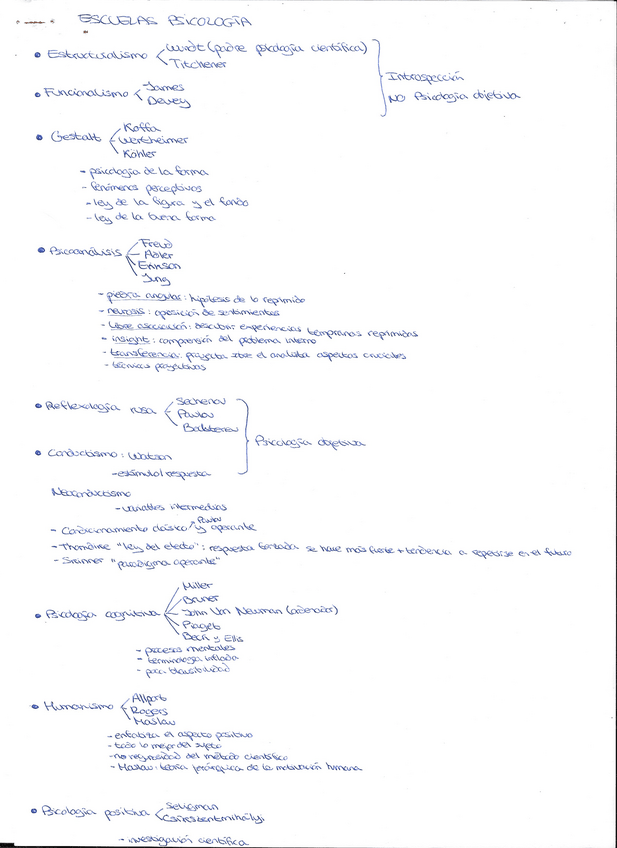 ESCUELAS PSICOLOGÍA
• Estructuralismo
Wundt (padre psicología científica)
Titchener
• Funcionalismo
James
Dewey
Introspección
NO Psicología objetiva
• Gestalt
Koffa
Wertheimer
Köhler
- psicología de la forma
- fenómenos perceptivos
- ley de la figura y el fondo
- ley de la buena forma
• Psicoanálisis
Freud
Adler
Erikson
Jung
- piedra angular: hipótesis de lo reprimido
- neurosis: oposición de sentimientos
- libre asociación: descubrir experiencias tempranas reprimidas
- insight: comprensión del problema interno
- transferencia: proyecta sobre el analista aspectos cruciales
- técnicas proyectivas
• Reflexología rusa
Sechenov
Pavlov
Bechterev
• Conductismo: Watson
- estímulo/respuesta
Psicología objetiva
Neoconductismo
- variables intermedias
- Condicionamiento clásico y operante
Pavlov
- Thorndike "ley del efecto": respuesta tentada se hace más fuerte + tendencia a repetirse en el futuro
- Skinner "paradigma operante"
• Psicología cognitiva
Miller
Bruner
John Von Neuman (ordenador)
Piaget
Beck y Ellis
- procesos mentales
- terminología inflada
- poca plausibilidad
• Humanismo
Allport
Rogers
Maslow
- enfatiza el aspecto positivo
- todo lo mejor del sujeto
- no rigurosidad del método científico
- Maslow: teoría jerárquica de la motivación humana
• Psicología positiva
Seligman
Csikszentmihalyi
- investigación científica